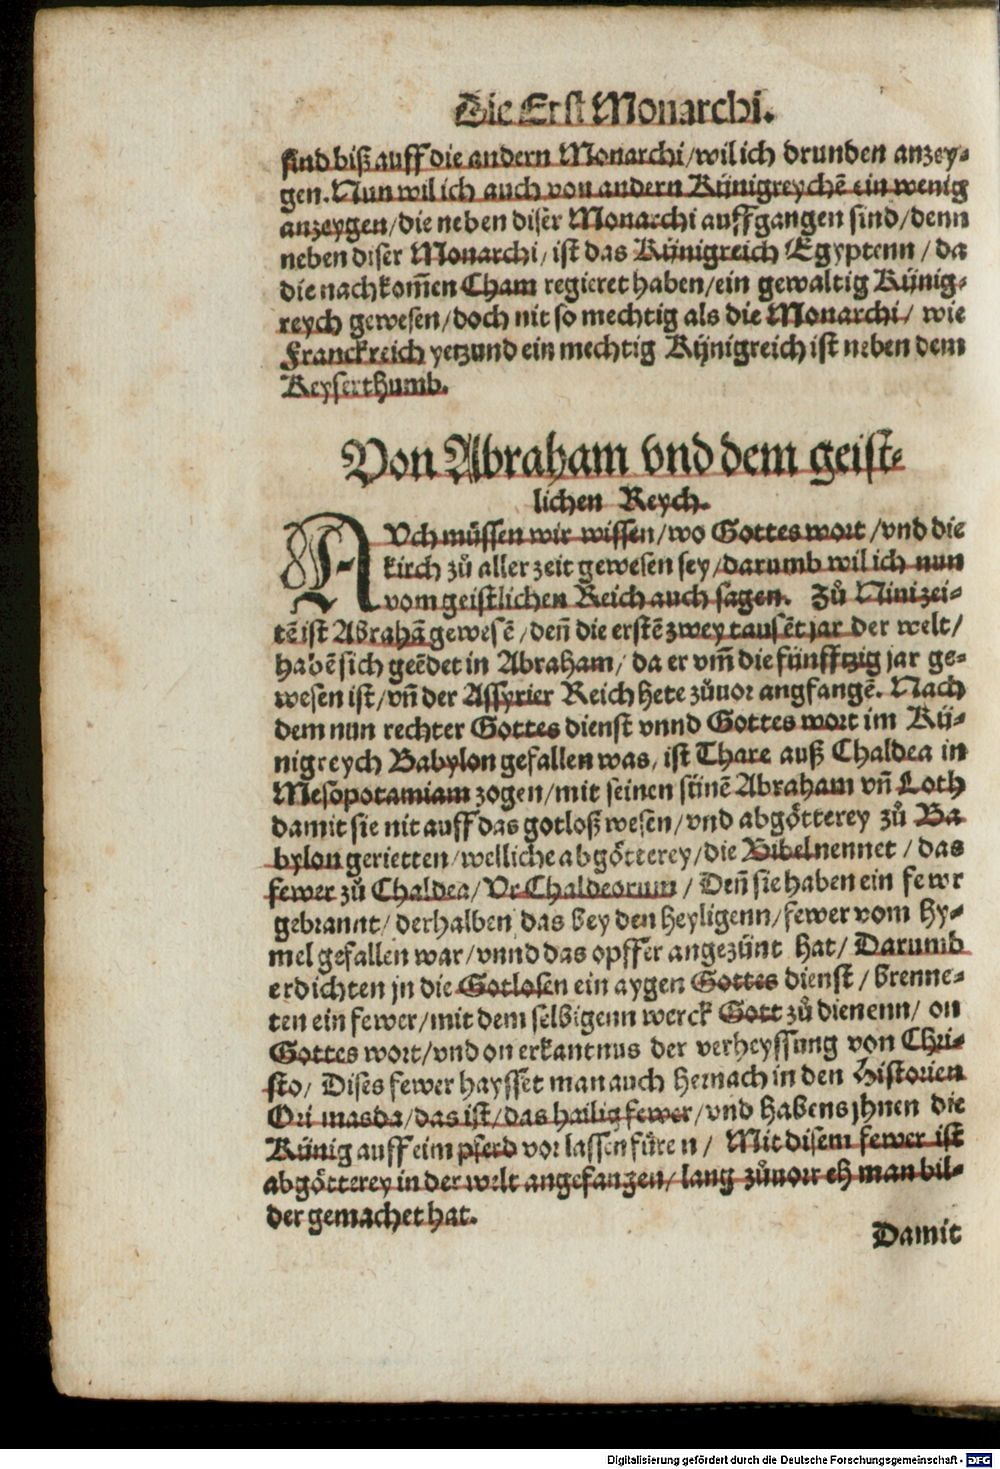 Die Erst Monarchi.
sind biß auff die andern Monarchi/wil ich drunden anzey⸗
gen. Nun wil ich auch von andern Künigreychē ein wenig
anzeygen/die neben diser Monarchi auffgangen sind/denn
neben diser Monarchi/ist das Künigreich Egyptenn/da
die nachkom̄en Cham regieret haben/ein gewaltig Künig⸗
reych gewesen/doch nit so mechtig als die Monarchi/ wie
Franckreich yetzund ein mechtig Künigreich ist neben dem
Keyserthumb.
Von Abraham vnd dem geist⸗
lichen Reych.
AUch müssen wir wissen/wo Gottes wort/vnd die
kirch zů aller zeit gewesen sey/darumb wil ich nun
vom geistlichen Reich auch sagen. Zů Nini zei⸗
tē ist Abrahā gewesē/den̄ die erstē zwey tausēt jar der welt/
habē sich geēdet in Abraham/da er vm̄ die fünfftzig jar ge⸗
wesen ist/vn̄ der Assyrier Reich hete zůuor angfangē. Nach
dem nun rechter Gottes dienst vnnd Gottes wort im Kü⸗
nigreych Babylon gefallen was, ist Thare auß Chaldea in
Mesopotamiam zogen/mit seinen sünē Abraham vn̄ Loth
damit sie nit auff das gotloß wesen/vnd abgötterey zů Ba
bylon gerietten/welliche abgötterey/die Bibel nennet/das
fewer zů Chaldea/Vr Chaldeorum/Den̄ sie haben ein fewr
gebrannt/derhalben das bey den heyligenn/fewer vom hy⸗
mel gefallen war/vnnd das opffer angezünt hat/Darumb
erdichten jn die Gotlosen ein aygen Gottes dienst/brenne⸗
ten ein fewer/mit dem selbigenn werck Gott zů dienenn/on
Gottes wort/vnd on erkantnus der verheyssung von Chri⸗
sto/ Dises fewer haysset man auch hernach in den Historien
Ori masda/das ist/das hailig fewer/vnd habens jhnen die
Künig auff eim pferd vor lassen füren/ Mit disem fewer ist
abgötterey in der welt angefangen/lang zůuorr eh man bil⸗
der gemachet hat.
Damit
Digitalisierung gefördert durch die Deutsche Forschungsgemeinschaft - DFG